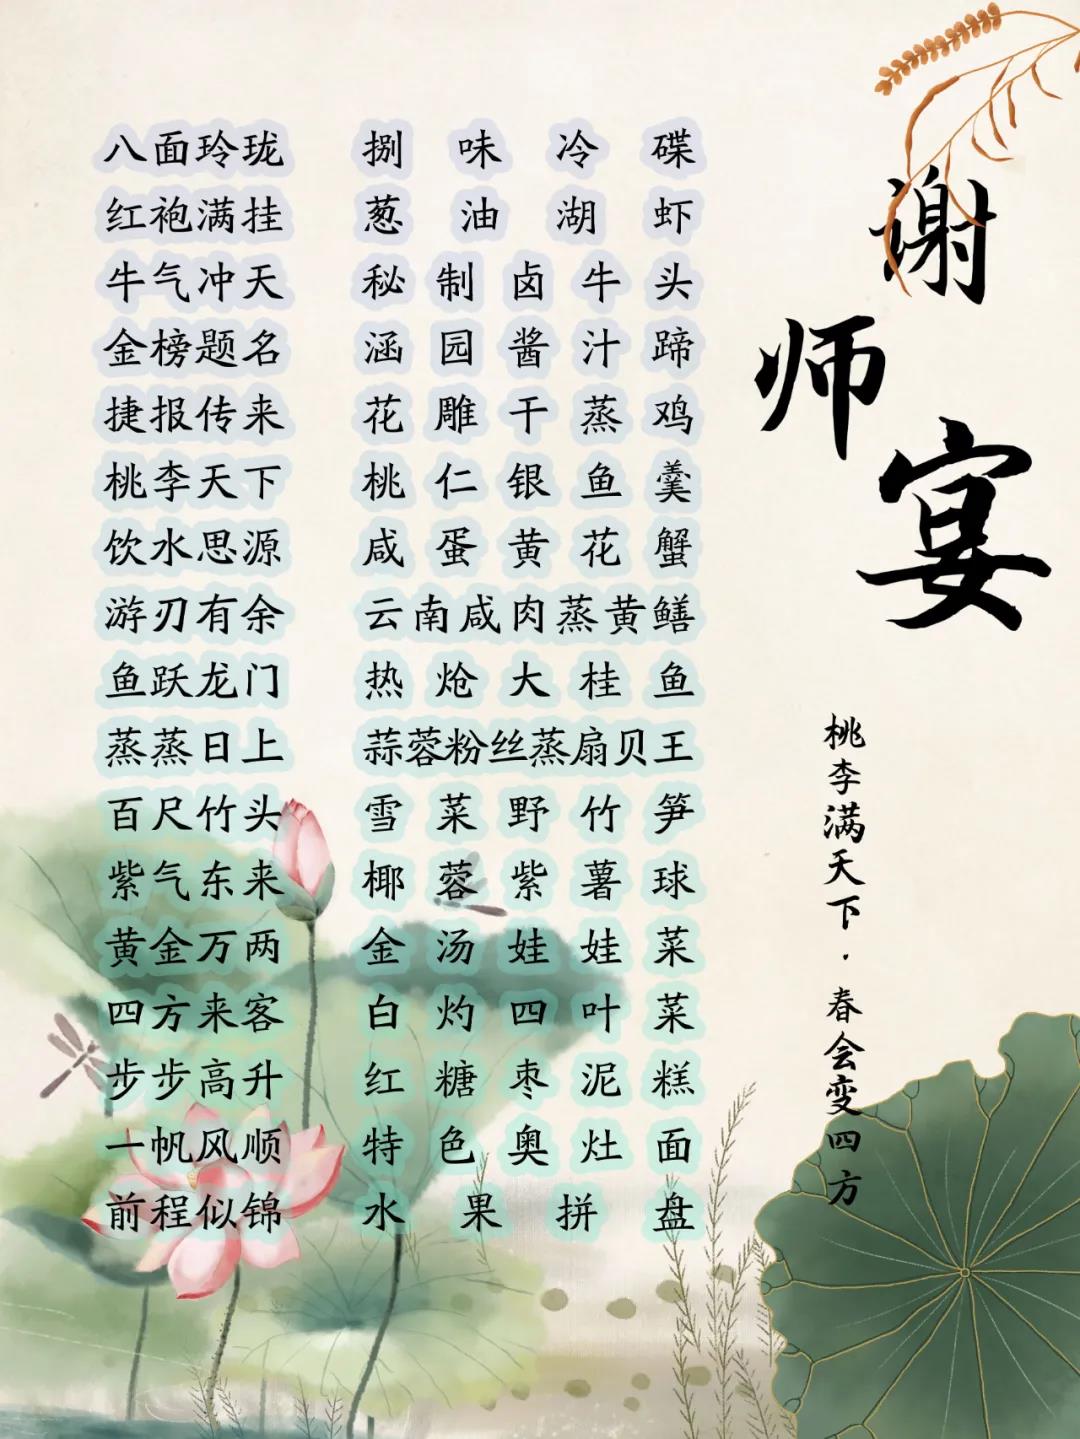 谢师宴
八面玲珑 捌味冷碟
红袍满挂 葱油湖虾
牛气冲天 秘制卤牛头
金榜题名 涵园酱汁蹄
捷报传来 花雕干蒸鸡
桃李天下 桃仁银鱼羹
饮水思源 咸蛋黄花蟹
游刃有余 云南咸肉蒸黄鳝
鱼跃龙门 热炝大桂鱼
蒸蒸日上 蒜蓉粉丝蒸扇贝王
百尺竹头 雪菜野竹笋
紫气东来 椰蓉紫薯球
黄金万两 金汤娃娃菜
四方来客 白灼四叶菜
步步高升 红糖枣泥糕
一帆风顺 特色奥灶面
前程似锦 水果拼盘
桃李满天下·春会变四方